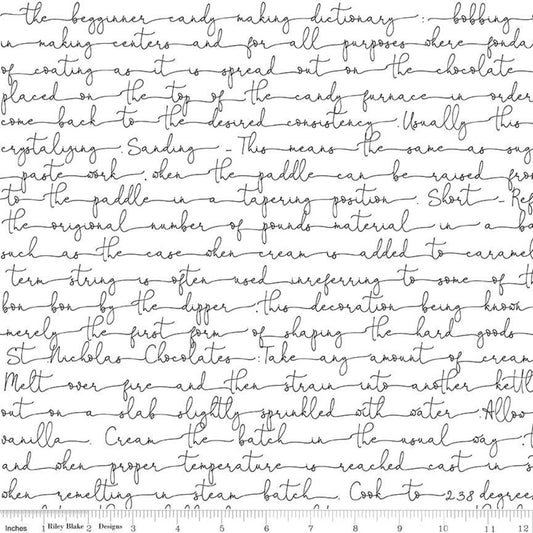 the begginner candy making dictionary : bobbing
in making centers and for all purposes where fonda
of coating as it is spread out on the chocolate
placed on the top of the candy furnace in order
come back to the desired consistency. Usually this
crystaliging. Sanding - This means the same as sug
paste work, when the paddle can be raised fro
to the paddle in a tapering position. Short - Ref
the origional number of pounds material in a ba
such as the case when cream is added to caramel
term string is often used inreferring to some of t
bon bon by the dipper. this decoration being known
merely the first form of shaping the hard goods
St. Nicholas Chocolates : Take any amount of cream
Melt over fire and then strain into another kettl
out on a slab slightly sprinkled with water. Allow
vanilla. Cream the batch in the usual way. t
and when proper temperature is reached cast in s
when remelting in steam batch. Cook to 238 degree
Inches 1 Riley Blake 2 Designs 3 4 5 6 7 8 9 10 11 12